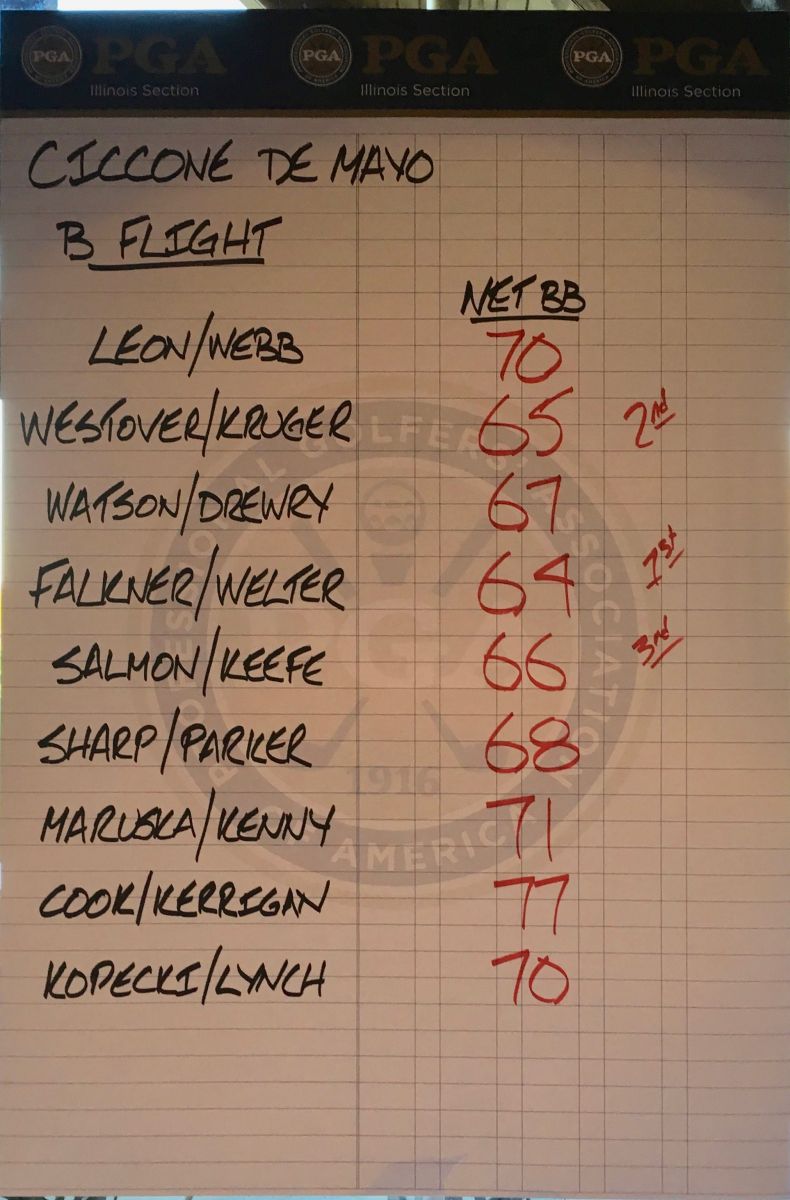 PGA PGA PGA PGA PGA PGA
Illinois Section Illinois Section Illinois Section
CICCONE DE MAYO
B FLIGHT
NET BB
LEON/WEBB 70
WESTOVER/KRUGER 65 2nd
WATSON/DREWRY 67
FALKNER/WELTER 64 1st
SALMON/KEEFE 66 3rd
SHARP/PARKER 68
MARUSKA/KENNY 71
COOK/KERRIGAN 77
KOPECKI/LYNCH 70
PROFESSIONAL GOLFERS' ASSOCIATION OF AMERICA
PGA
1916